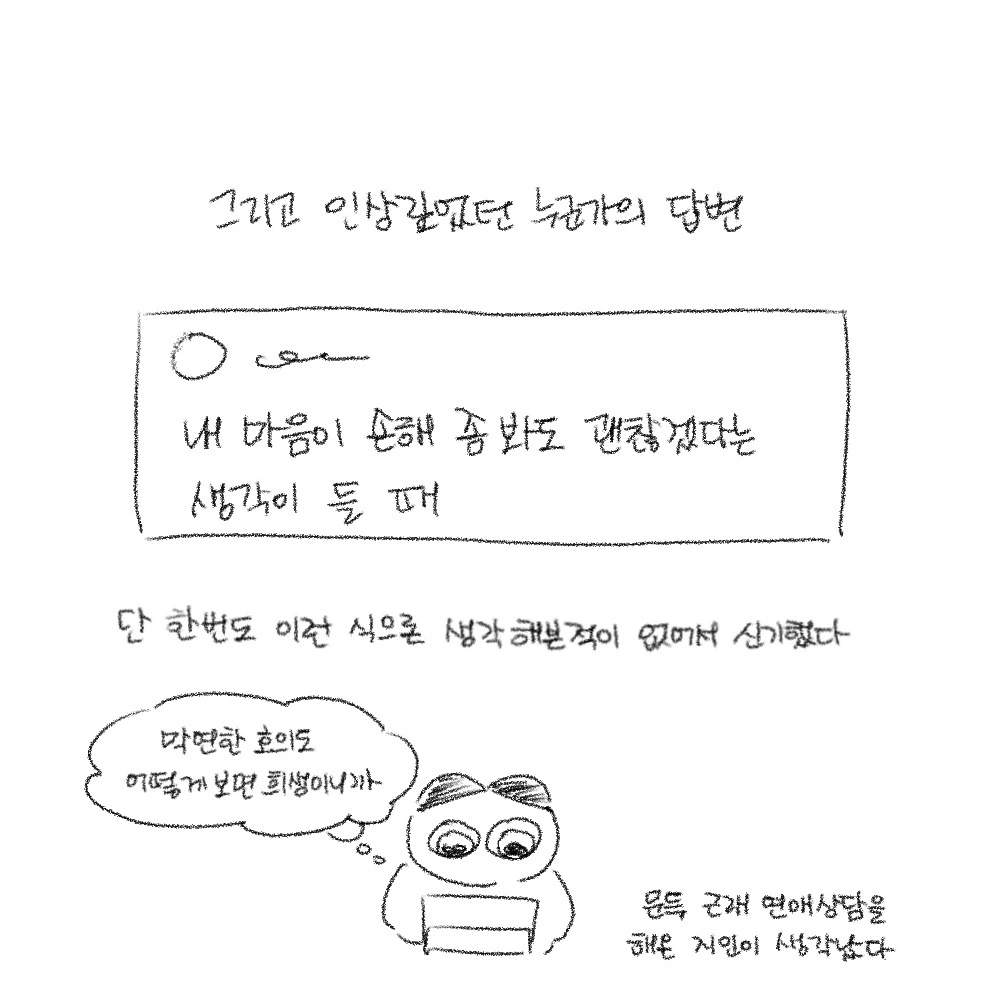 그리고 인상깊었던 누군가의 답변
내 마음이 손해 좀 봐도 괜찮겠다는
생각이 들 때
단 한번도 이런 식으론 생각해본적이 없어서 신기했다
막연한 호의도
어떻게 보면 희생이니까
문득 근래 연애상담을
해온 지인이 생각났다